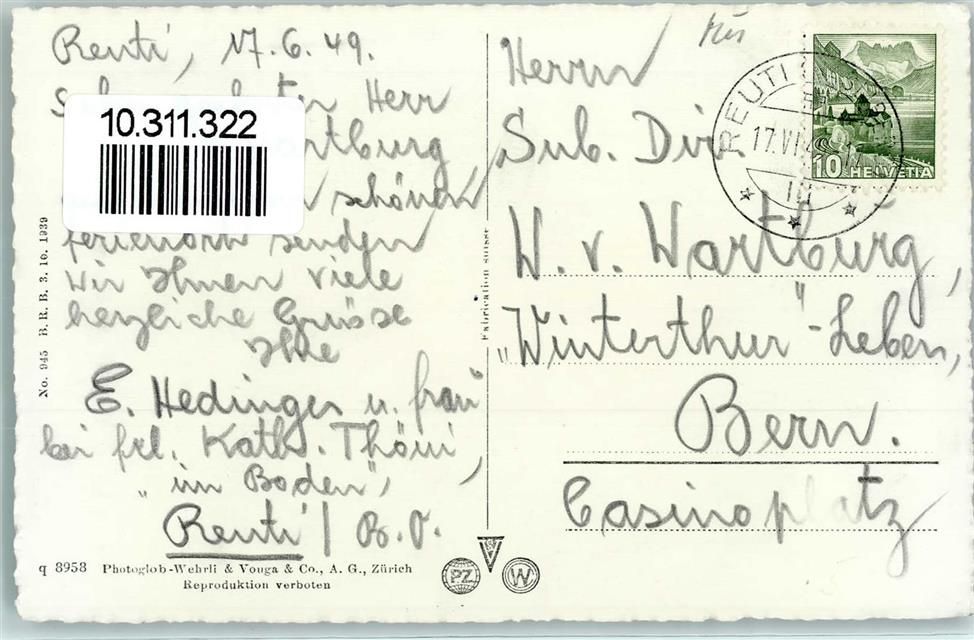 Reuti, 17.6.49.
Herr
10.311.322
schönen
Ferienort senden
wir Ihnen viele
herzliche Grüsse
Ihre
E. Hedinger u. Frau
bei Frl. Kath. Thöni,
"im Boden",
Reuti / B.O.
q 8958 Photoglob-Wehrli & Vouga & Co., A. G., Zürich
Reproduktion verboten
No. 945 B.R.B. 3. 10. 1939
Fabrication suisse
PZ
W
Herrn
Sub. Dir.
W. v. Wartburg,
"Winterthur"-Leben,
Bern.
Casinoplatz
REUTI
17.VI
10 HELVETIA